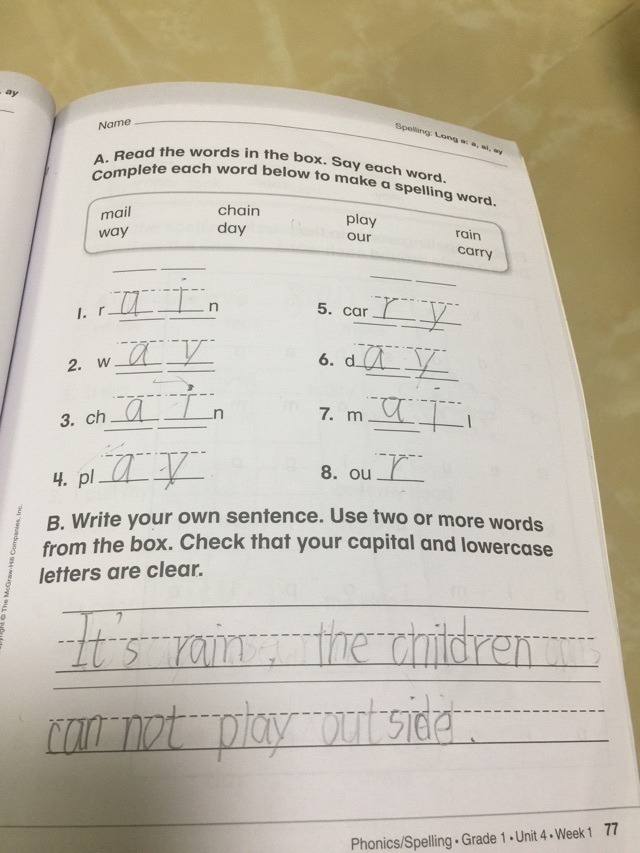 ay
Name
Spelling: Long a: a, ai, ay
A. Read the words in the box. Say each word.
Complete each word below to make a spelling word.
mail chain play rain
way day our carry
1. r a i n
5. car r y
2. w a y
6. d a y
3. ch a i n
7. m a i l
4. pl a y
8. ou r
B. Write your own sentence. Use two or more words
from the box. Check that your capital and lowercase
letters are clear.
It's rain, the children
can not play outside.
© The McGraw-Hill Companies, Inc.
Phonics/Spelling • Grade 1 • Unit 4 • Week 1 77